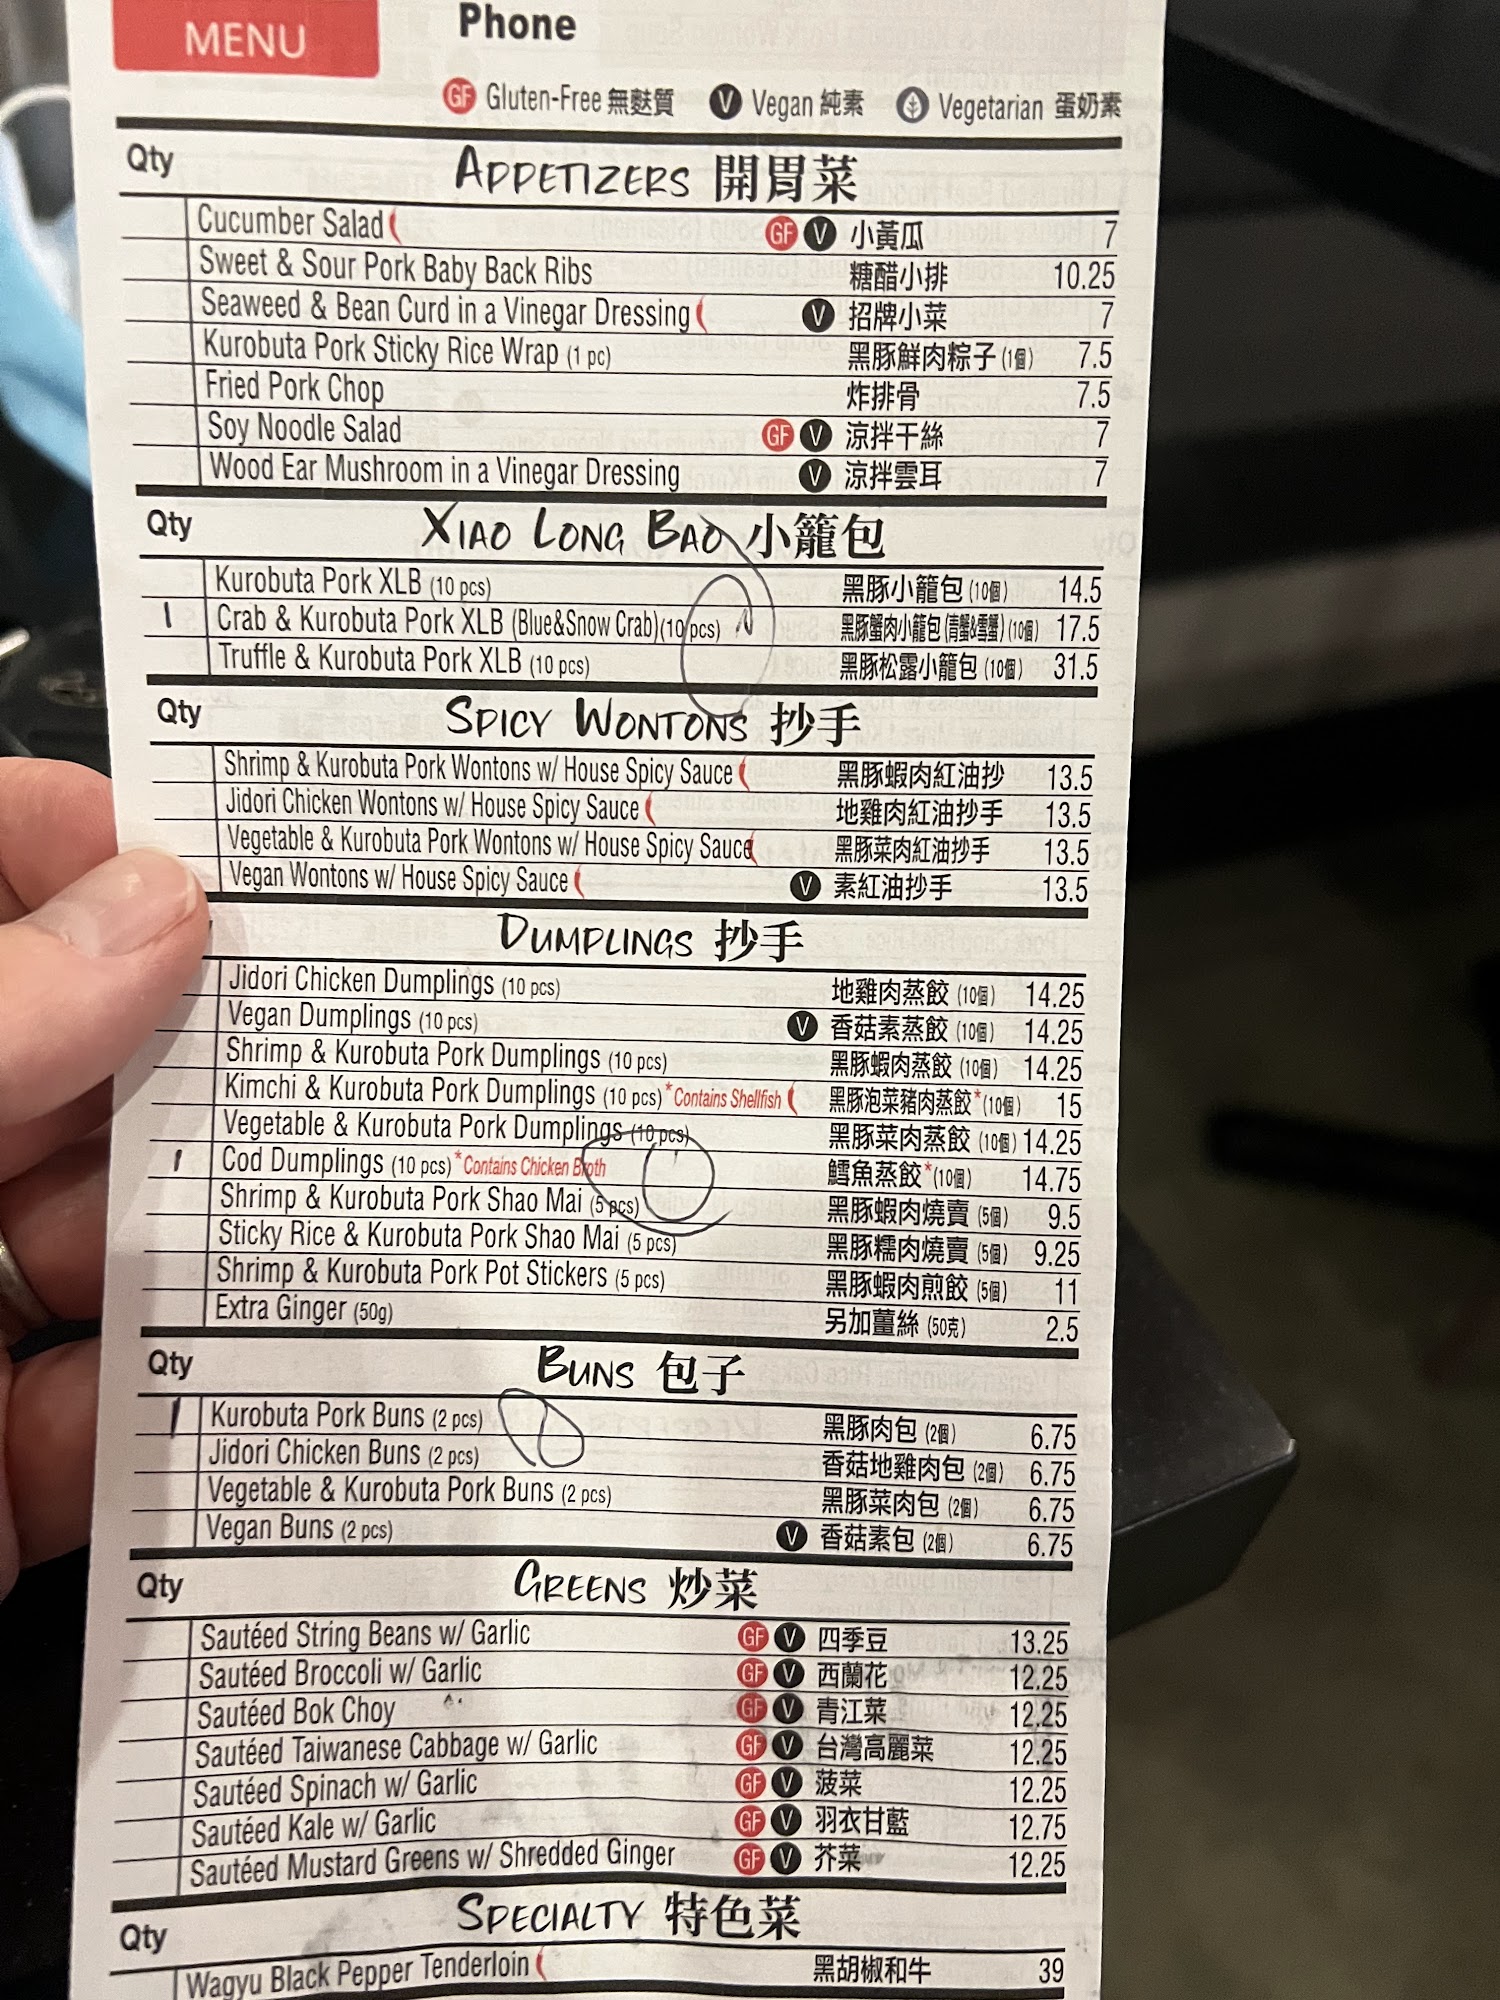 MENU
Phone
GF Gluten-Free 無麩質 V Vegan 純素 Vegetarian 蛋奶素
Qty APPETIZERS 開胃菜
Cucumber Salad GF V 小黃瓜 7
Sweet & Sour Pork Baby Back Ribs 糖醋小排 10.25
Seaweed & Bean Curd in a Vinegar Dressing V 招牌小菜 7
Kurobuta Pork Sticky Rice Wrap (1 pc) 黑豚鮮肉粽子 (1個) 7.5
Fried Pork Chop 炸排骨 7.5
Soy Noodle Salad GF V 涼拌干絲 7
Wood Ear Mushroom in a Vinegar Dressing V 涼拌雲耳 7
Qty XIAO LONG BAO 小籠包
Kurobuta Pork XLB (10 pcs) 黑豚小籠包 (10個) 14.5
1 Crab & Kurobuta Pork XLB (Blue&Snow Crab)(10 pcs) 黑豚蟹肉小籠包 (青蟹&雪蟹) (10個) 17.5
Truffle & Kurobuta Pork XLB (10 pcs) 黑豚松露小籠包 (10個) 31.5
Qty SPICY WONTONS 抄手
Shrimp & Kurobuta Pork Wontons w/ House Spicy Sauce 黑豚蝦肉紅油抄 13.5
Jidori Chicken Wontons w/ House Spicy Sauce 地雞肉紅油抄手 13.5
Vegetable & Kurobuta Pork Wontons w/ House Spicy Sauce 黑豚菜肉紅油抄手 13.5
Vegan Wontons w/ House Spicy Sauce V 素紅油抄手 13.5
DUMPLINGS 抄手
Jidori Chicken Dumplings (10 pcs) 地雞肉蒸餃 (10個) 14.25
Vegan Dumplings (10 pcs) V 香菇素蒸餃 (10個) 14.25
Shrimp & Kurobuta Pork Dumplings (10 pcs) 黑豚蝦肉蒸餃 (10個) 14.25
Kimchi & Kurobuta Pork Dumplings (10 pcs) *Contains Shellfish 黑豚泡菜豬肉蒸餃*(10個) 15
Vegetable & Kurobuta Pork Dumplings (10 pcs) 黑豚菜肉蒸餃 (10個) 14.25
1 Cod Dumplings (10 pcs) *Contains Chicken Broth 鱈魚蒸餃*(10個) 14.75
Shrimp & Kurobuta Pork Shao Mai (5 pcs) 黑豚蝦肉燒賣 (5個) 9.5
Sticky Rice & Kurobuta Pork Shao Mai (5 pcs) 黑豚糯肉燒賣 (5個) 9.25
Shrimp & Kurobuta Pork Pot Stickers (5 pcs) 黑豚蝦肉煎餃 (5個) 11
Extra Ginger (50g) 另加薑絲 (50克) 2.5
Qty BUNS 包子
1 Kurobuta Pork Buns (2 pcs) 黑豚肉包 (2個) 6.75
Jidori Chicken Buns (2 pcs) 香菇地雞肉包 (2個) 6.75
Vegetable & Kurobuta Pork Buns (2 pcs) 黑豚菜肉包 (2個) 6.75
Vegan Buns (2 pcs) V 香菇素包 (2個) 6.75
Qty GREENS 炒菜
Sautéed String Beans w/ Garlic GF V 四季豆 13.25
Sautéed Broccoli w/ Garlic GF V 西蘭花 12.25
Sautéed Bok Choy GF V 青江菜 12.25
Sautéed Taiwanese Cabbage w/ Garlic GF V 台灣高麗菜 12.25
Sautéed Spinach w/ Garlic GF V 菠菜 12.25
Sautéed Kale w/ Garlic GF V 羽衣甘藍 12.75
Sautéed Mustard Greens w/ Shredded Ginger GF V 芥菜 12.25
Qty SPECIALTY 特色菜
Wagyu Black Pepper Tenderloin 黑胡椒和牛 39